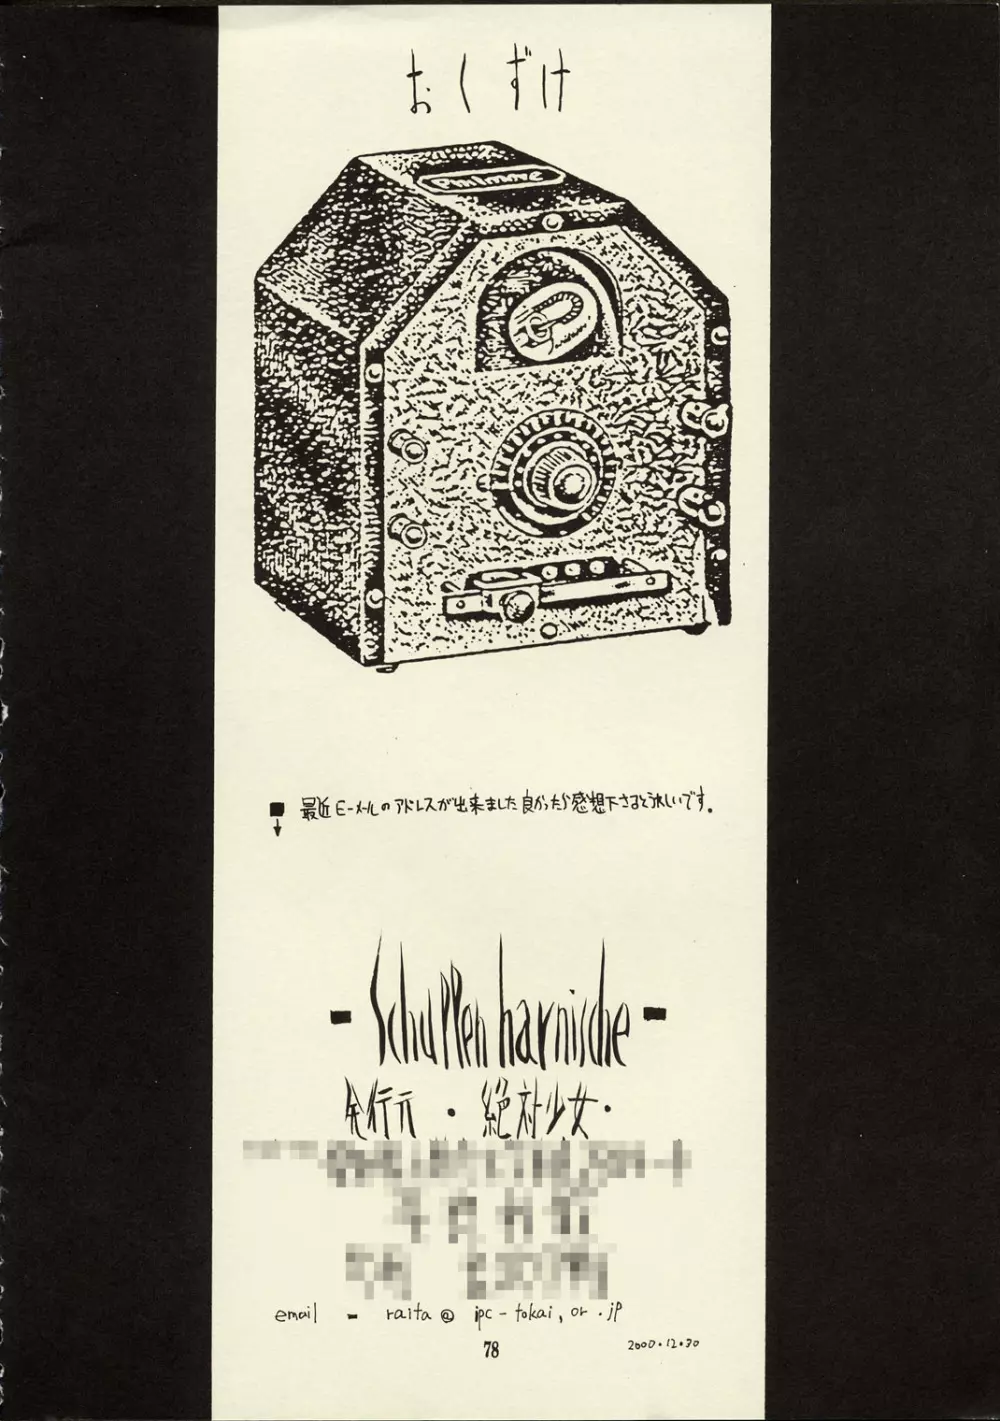 おくずけ
Philmore
■ 最近E-メールのアドレスが出来ました良かったら感想下さるとうれしいです。
- Schuppen harnische -
発行元・絶対少女・
email - raita@ipc-tokai,or.jp
78
2000.12.30